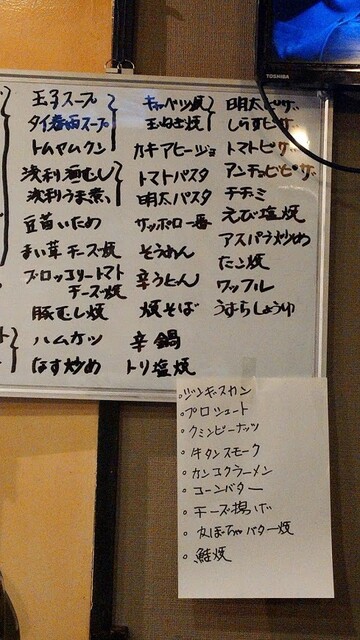 TOSHIBA
玉子スープ
タイ春雨スープ
トムヤムクン
浅利酒むし
浅利うま煮
豆苗いため
まい茸チーズ焼
ブロッコリートマト
チーズ焼
豚むし焼
ハムカツ
なす炒め
キャベツ焼
玉ねぎ焼
カキアヒージョ
トマトパスタ
明太パスタ
サッポロ一番
そうめん
辛うどん
焼そば
辛鍋
トリ塩焼
明太ピザ
しらすピザ
トマトピザ
アンチョビピザ
チヂミ
えび塩焼
アスパラ炒め
たこ焼
ワッフル
うずらしょうゆ
。ジンギスカン
。プロシュート
。クミンピーナッツ
。牛タンスモーク
。カンコクラーメン
。コーンバター
。チーズ揚げ
。かぼちゃバター焼
。鮭焼